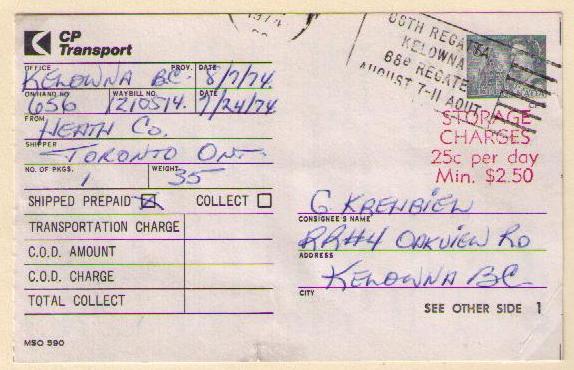 CP
Transport
OFFICE PROV. DATE
KELOWNA BC. 8/7/74.
ON HAND NO. WAYBILL NO. DATE
656 1210514. 7/24/74
FROM
HEATH CO.
SHIPPER
TORONTO ONT.
NO. OF PKGS. WEIGHT
1 35
SHIPPED PREPAID COLLECT
TRANSPORTATION CHARGE
C.O.D. AMOUNT
C.O.D. CHARGE
TOTAL COLLECT
MSO 590
1974
68TH REGATTA
KELOWNA
68e REGATE
AUGUST 7-11 AOUT
STORAGE
CHARGES
25c per day
Min. $2.50
G KREHBIEL
CONSIGNEE'S NAME
RR#4 OAKVIEW RD
ADDRESS
KELOWNA BC
CITY
SEE OTHER SIDE 1